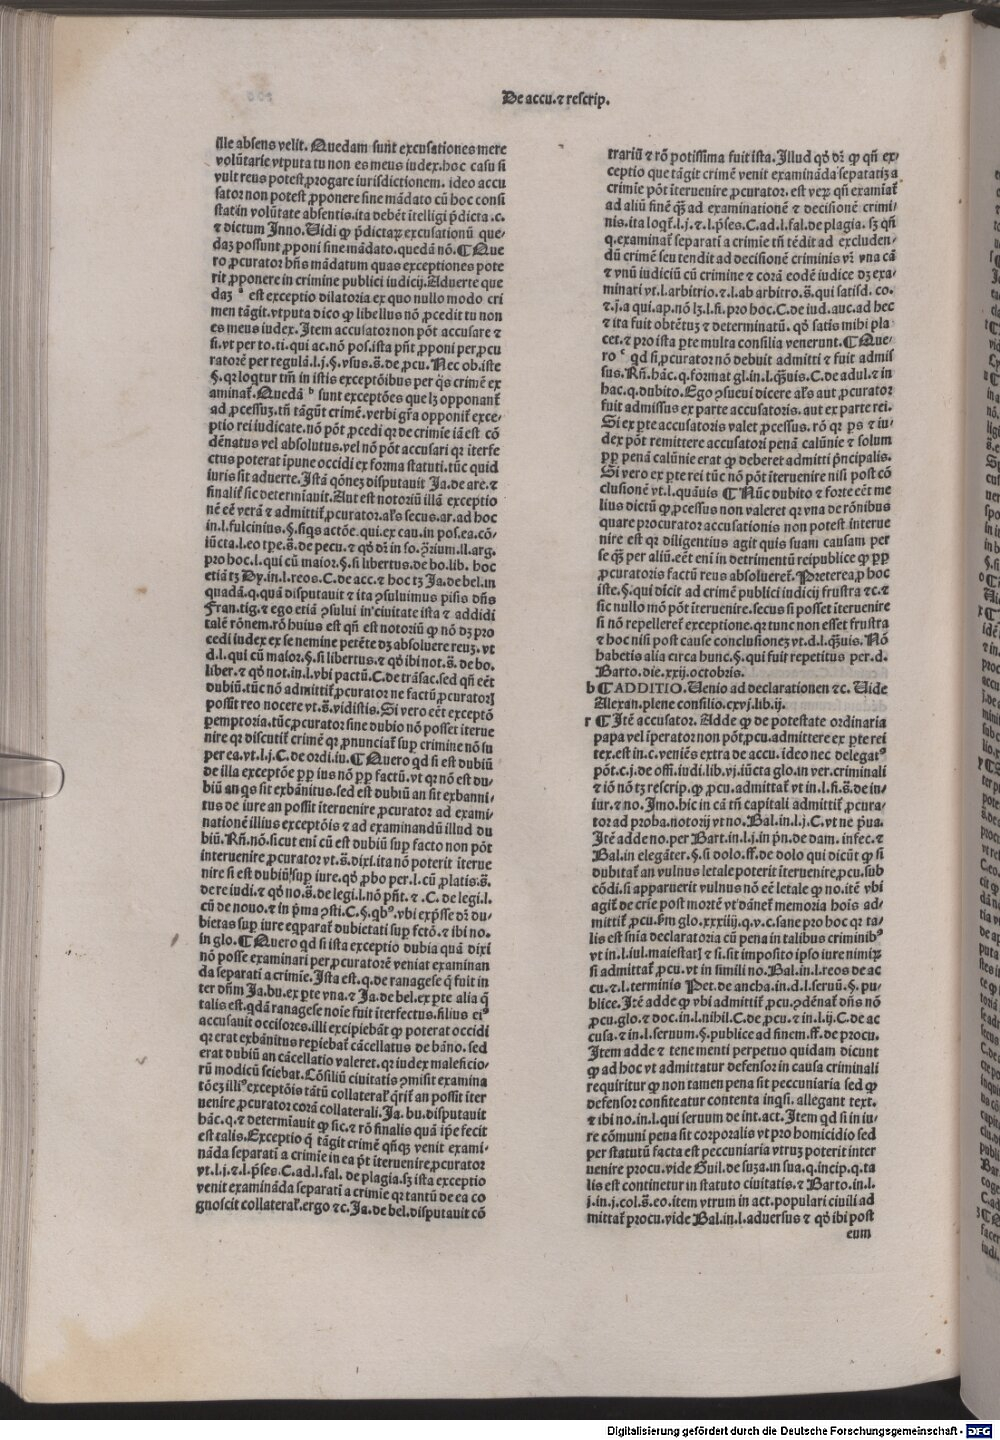 De accu.⁊ rescrip.
ille absens velit. Quedam sunt excusationes mere
volūtarie vtputa tu non es meus iudex.hoc casu si
vult reus potest ꝓrogare iurisdictionem. ideo accu
sator non potest ꝓponere sine mādato cū hoc consi
stat in volūtate absentis.ita debēt ītelligi p̄dicta .c.
⁊ dictum Inno. Uidi ꝙ p̄dictaꝝ excusationū que-
daꝫ possunt ꝓponi sine mādato.quedā nō.¶ Que
ro ꝓcurator hn̄s mādatum quas exceptiones pote
rit ꝓponere in crimine publici iudicij. Aduerte que
daꝫ ᵃ est exceptio dilatoria ex quo nullo modo cri
men tāgit.vtputa dico ꝙ libellus nō ꝓcedit tu non
es meus iudex. Item accusator non pōt accusare ⁊
si.vt per to.ti.qui ac.nō pos.ista pn̄t ꝓponi per ꝓcu
ratorē per regulā.l.j.§.vsus.s̄.de ꝓcu. Nec ob.iste
§.qꝛ loqtur tm̄ in istis exceptōibus per q̄s crimē ex
aminat᷑. Quedā ᵇ sunt exceptōes que lꝫ opponant᷑
ad ꝓcessuꝫ.tn̄ tāgūt crimē.verbi gr̄a opponit᷑ exce-
ptio rei iudicate.nō pōt ꝓcedi qꝛ de crimie iā est cō
dēnatus vel absolutus.vel nō pōt accusari qꝛ iterfe
ctus poterat īpune occidi ex forma statuti.tūc quid
iuris sit aduerte. Istā q̄oneꝫ disputauit Ja.de are.⁊
finalit᷑ sic determīauit. Aut est notoriū illā exceptio
nē eē verā ⁊ admittit᷑ ꝓcurator.al's secus.ar.ad hoc
in.l.fulcinius.§.siqs actōe.qui.ex cau.in pos.ea.cō-
iūcta.l.eo tpe.s̄.de pecu.⁊ qd̄ dr̄ in so.ꝯ̄rium.ll.arg.
pro hoc.l.qui cū maior.§.si libertus.de bo.lib. hoc
etiā tꝫ Dy.in.l.reos.C.de acc.⁊ hoc tꝫ Ja.de bel.in
quadā.q.quā disputauit ⁊ ita ꝯsuluimus pisis dn̄s
Fran.tig.⁊ ego etiā ꝯsului in ciuitate ista ⁊ addidi
talē rōnem.rō huius est qn̄ est notoriū ꝙ nō dꝫ pro
cedi iudex ex se nemine petēte dꝫ absoluere reuꝫ.vt
d.l.qui cū maior.§.si libertus.⁊ qd̄ ibi not.s̄.de bo.
liber.⁊ qd̄ not.in.l.vbi pactū.C.de trāsac.sed qn̄ eēt
dubiū.tūc nō admittit᷑ ꝓcurator ne factū ꝓcurator]
possit reo nocere vt.s̄.vidistis. Si vero eēt exceptō
ꝑemptoria.tūc ꝓcurator sine dubio nō posset iterue
nire qꝛ discutit᷑ crimē qꝛ ꝓnunciat᷑ suꝑ crimine nō su
per ea.vt.l.j.C.de ordi.iu.¶ Quero qd si est dubiū
de illa exceptōe ꝓꝑ ius nō ꝓꝑ factū.vt qꝛ nō est du-
biū an qs sit exbānitus.sed est dubiū an sit exbanni-
tus de iure an possit iteruenire ꝓcurator ad exami-
nationē illius exceptōis ⁊ ad examinandū illud du
biū. Rn̄.nō.sicut eni cū est dubiū suꝑ facto non pōt
interuenire ꝓcurator vt.s̄.dixi.ita nō poterit iterue
nire si est dubiū suꝑ iure.qd̄ ꝓbo per.l.cū ꝓlatis.s̄.
de re iudi.⁊ qd̄ no.s̄.de legi.l.nō pn̄t.⁊ .C. de legi.l.
cū de nouo.⁊ in p̄ma ꝯsti.C.§.qbꝰ.vbi exp̄sse dr̄ du-
bietas suꝑ iure eqparat᷑ dubietati suꝑ fctō.⁊ ibi no.
in glo.¶ Quero qd si ista exceptio dubia quā dixi
nō posse examinari per ꝓcuratorē veniat examinan
da separati a crimie. Ista est.q.de ranagese q̄ fuit in
ter dn̄m Ja.bu.ex ꝑte vna.⁊ Ja.de bel.ex ꝑte alia q̄
talis est.qdā ranagese noie fuit iterfectus.filius eiꝰ
accusauit occisores.illi excipiebāt ꝙ poterat occidi
qꝛ erat exbānitus reꝑiebat᷑ cācellatus de bāno. sed
erat dubiū an cācellatio valeret.qꝛ index maleficio-
rū modicū sciebat. Cōsiliū ciuitatis ꝯmisit examina
tōeꝫ illiꝰ exceptōis tātū collaterali q̄rit᷑ an possit iter
uenire ꝓcurator corā collaterali. Ja. bu.disputauit
hāc.q.⁊ determīauit ꝙ sic.⁊ rō finalis quā ip̄e fecit
est talis. Exceptio q̄ tāgit crimē qn̄qꝫ venit exami-
nāda separati a crimie in ea p̄t iteruenire ꝓcurator
vt.l.j.⁊.l.p̄ses.C.ad.l.fal. de plagia.sꝫ ista exceptio
venit examināda separati a crimie qꝛ tantū de ea co
gnoscit collateral᷑.ergo ⁊c. Ja.de bel.disputauit cō
trariū ⁊ rō potissima fuit ista. Illud qd̄ dr̄ ꝙ qn̄ ex-
ceptio que tāgit crimē venit examināda sepatatiꝫ a
crimie pōt iteruenire ꝓcurator. est veꝝ qn̄ examīat᷑
ad aliū finē q̄ꝫ ad examinationē ⁊ decisionē crimi-
nis.ita loqt᷑.l.j.⁊.l.p̄ses.C.ad.l.fal.de plagia. sꝫ qn̄
q.examinat᷑ separati a crimie tn̄ tēdit ad excluden-
dū crimē seu tendit ad decisionē criminis vr̄ vna cā
⁊ vnū iudiciū cū crimine ⁊ corā eodē iudice dꝫ exa-
minari vt.l.arbitrio.⁊.l.ab arbitro.s̄.qui satisd. co.
⁊.j.a qui.ap.nō lꝫ.l.fi.pro hoc.C.de iud.auc.ad hec
⁊ ita fuit obtētuꝫ ⁊ determinatū. qd̄ satis mihi pla-
cet.⁊ pro ista ꝑte multa consilia venerunt.¶ Que-
ro ᶜ qd si ꝓcurator nō debuit admitti ⁊ fuit admis
sus. Rn̄. hāc.q.format gl.in.l.q̄uis.C.de adul.⁊ in
hac.q.dubito. Ego ꝯsueui dicere al's aut ꝓcurator
fuit admissus ex parte accusatoris. aut ex parte rei.
Si ex ꝑte accusatoris valet ꝓcessus. rō qꝛ ps ⁊ iu-
dex pōt remittere accusatori penā calūnie ⁊ solum
ꝓꝑ penā calūnie erat ꝙ deberet admitti p̄ncipalis.
Si vero ex ꝑte rei tūc nō pōt iteruenire nisi post cō
clusionē vt.l.quāuis ¶ Nūc dubito ⁊ forte eēt me
lius dictū ꝙ ꝓcessus non valeret qꝛ vna de rōnibus
quare procurator accusationis non potest interue
nire est qꝛ diligentius agit quis suam causam per
se q̄ꝫ per aliū.eēt eni in detrimentū reipublice ꝙ ꝓꝑ
ꝓcuratoris factū reus absolueret᷑. Preterea ꝓ hoc
iste.§.qui dicit ad crimē publici iudicij frustra ⁊c.⁊
sic nullo mō pōt iteruenire.secus si posset iteruenire
si nō repelleret᷑ exceptione.qꝛ tunc non esset frustra
⁊ hoc nisi post cause conclusioneꝫ vt.d.l.q̄uis. Nō
habetis alia circa hunc.§.qui fuit repetitus per.d.
Barto.die.xxij.octobris.
b ¶ ADDITIO. Uenio ad declarationen ⁊c. Uide
Alexan.plene consilio.cxvj.lib.ij.
r ¶ Itē accusator. Adde ꝙ de potestate ordinaria
papa vel īperator non pōt ꝓcu.admittere ex ꝑte rei
tex.est in.c.veniēs extra de accu. ideo nec delegatꝰ
pōt.c.j.de offi.iudi.lib.vj.iūcta glo.in ver.criminali
⁊ iō nō tꝫ rescrip.ꝙ ꝓcu.admittat᷑ vt in.l.fi.s̄.de in-
iur.⁊ no. Imo.hic in cā tn̄ capitali admittit᷑ ꝓcura-
tor ad proba.notorij vt no. Bal.in.l.j.C.vt ne p̄ua.
Itē adde no.per Bart.in.l.j.in pn̄.de dam. infec.⁊
Bal.in elegāter.§.si dolo.ff.de dolo qui dicūt ꝙ si
dubitat᷑ an vulnus letale poterit iteruenire ꝓcu.sub
cōdi.si apparuerit vulnus nō eē letale ꝙ no.itē vbi
agit᷑ de crīe post mortē vt dānet᷑ memoria hois ad-
mittit᷑ ꝓcu.ẜm glo.xxxiiij.q.v.c.sane pro hoc qꝛ ta-
lis est snīa declaratoria cū pena in talibus criminibꝰ
vt in.l.iul.maiestat] ⁊ si.sit imposito ipso iure nimiꝝ
si admittat᷑ ꝓcu.vt in simili no. Bal.in.l.reos de ac
cu.⁊.l. terminis Pet.de ancha.in.d.l.seruū.§. pu-
blice. Itē adde ꝙ vbi admittit᷑ ꝓcu.ꝯdēnat᷑ dn̄s nō
ꝓcu.glo.⁊ doc.in.l.nihil.C.de ꝓcu.⁊ in.l.ij.C.de ac
cusa.⁊ in.l.seruum.§.publice ad finem.ff.de procu.
Item adde ⁊ tene menti perpetuo quidam dicunt
ꝙ ad hoc vt admittatur defensor in causa criminali
requiritur ꝙ non tamen pena sit peccuniaria sed ꝙ
defensor confiteatur contenta inqsi. allegant text.
⁊ ibi no.in.l.qui seruum de int.act. Item qd si in iu-
re cōmuni pena sit corporalis vt pro homicidio sed
per statutū facta est peccuniaria vtruꝫ poterit inter
uenire procu.vide Guil.de suza.in sua.q.incip.q.ta
lis est continetur in statuto ciuitatis.⁊ Barto.in.l.
j.in.j.col.s̄.eo.item vtrum in act.populari ciuili ad
mittat᷑ procu.vide Bal.in.l.aduersus ⁊ qd̄ ibi post
eum
Digitalisierung gefördert durch die Deutsche Forschungsgemeinschaft - DFG